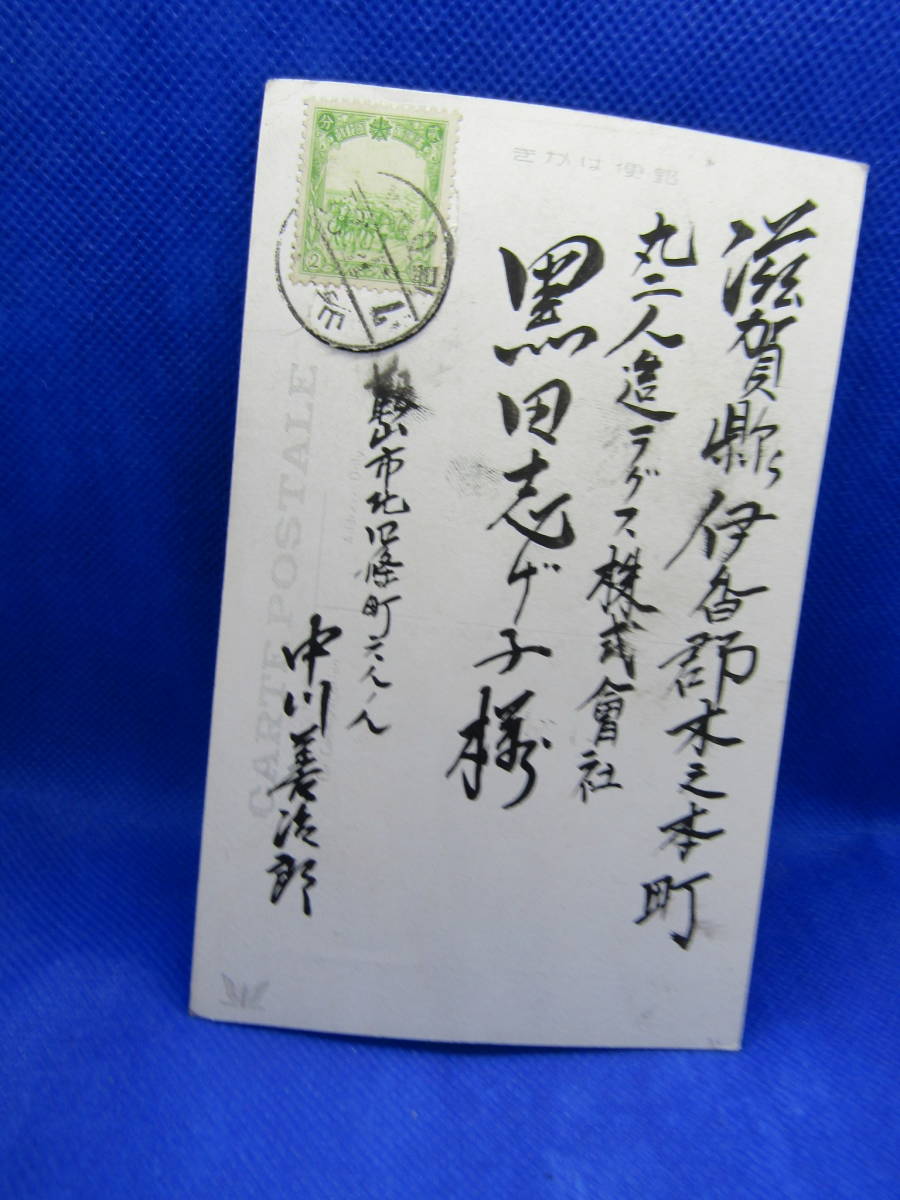 滋賀縣伊香郡木之本町
丸二人造テグス株式會社
黒田志げ子様
鞍山市北四條町六八ノ八
中川善治郎
郵便はかき
CARTE POSTALE
分
2